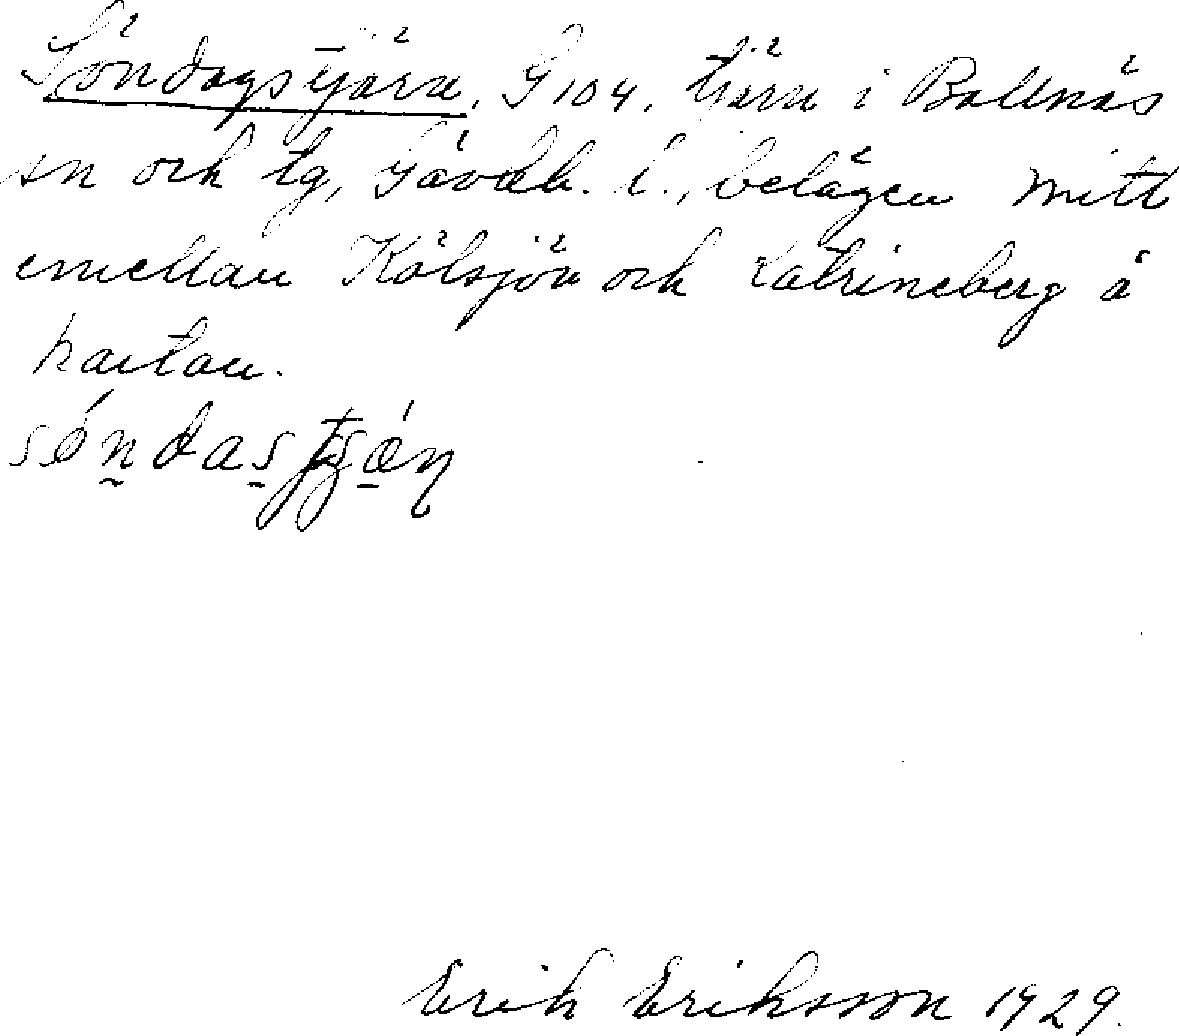 Söndagstjärn, G 104. tjärn i Bollnäs
sn och tg, Gävleb. l., belägen mitt
emellan Kölsjön och Katrineberg å
kartan.
Erik Eriksson 1929.